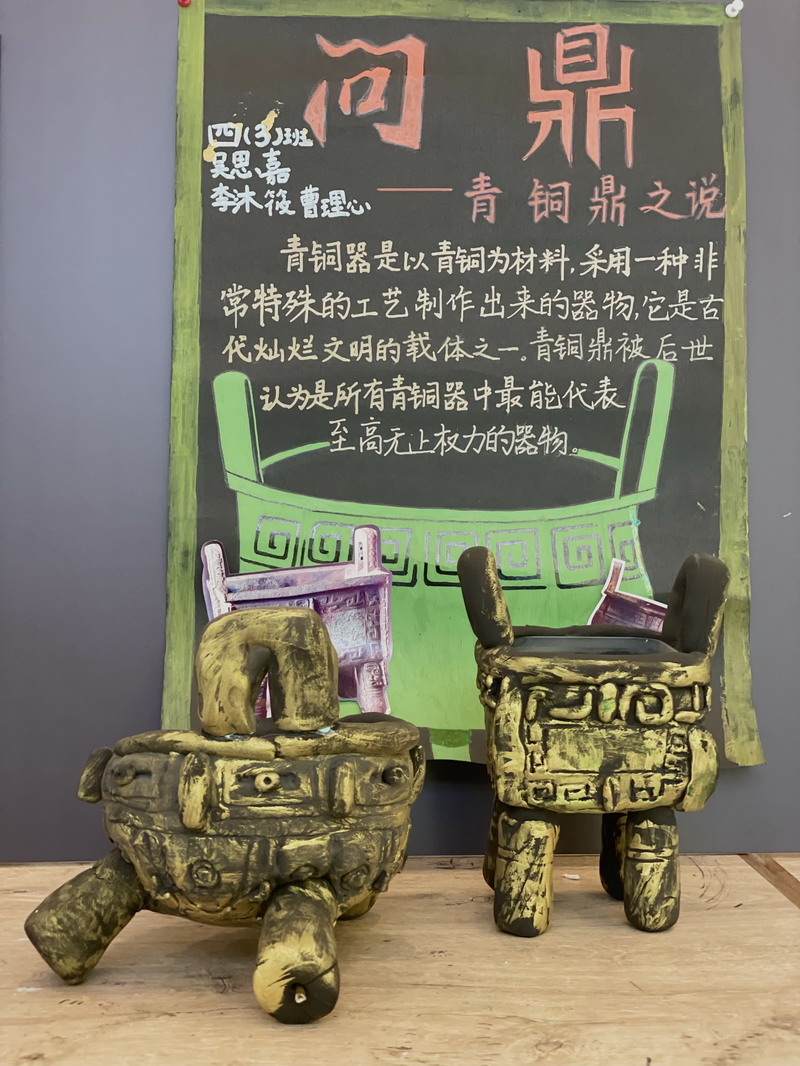 问鼎
四(3)班
吴思嘉
李沐筱 曹理心
——青铜鼎之说
青铜器是以青铜为材料,采用一种非
常特殊的工艺制作出来的器物,它是古
代灿烂文明的载体之一。青铜鼎被后世
认为是所有青铜器中最能代表
至高无上权力的器物。